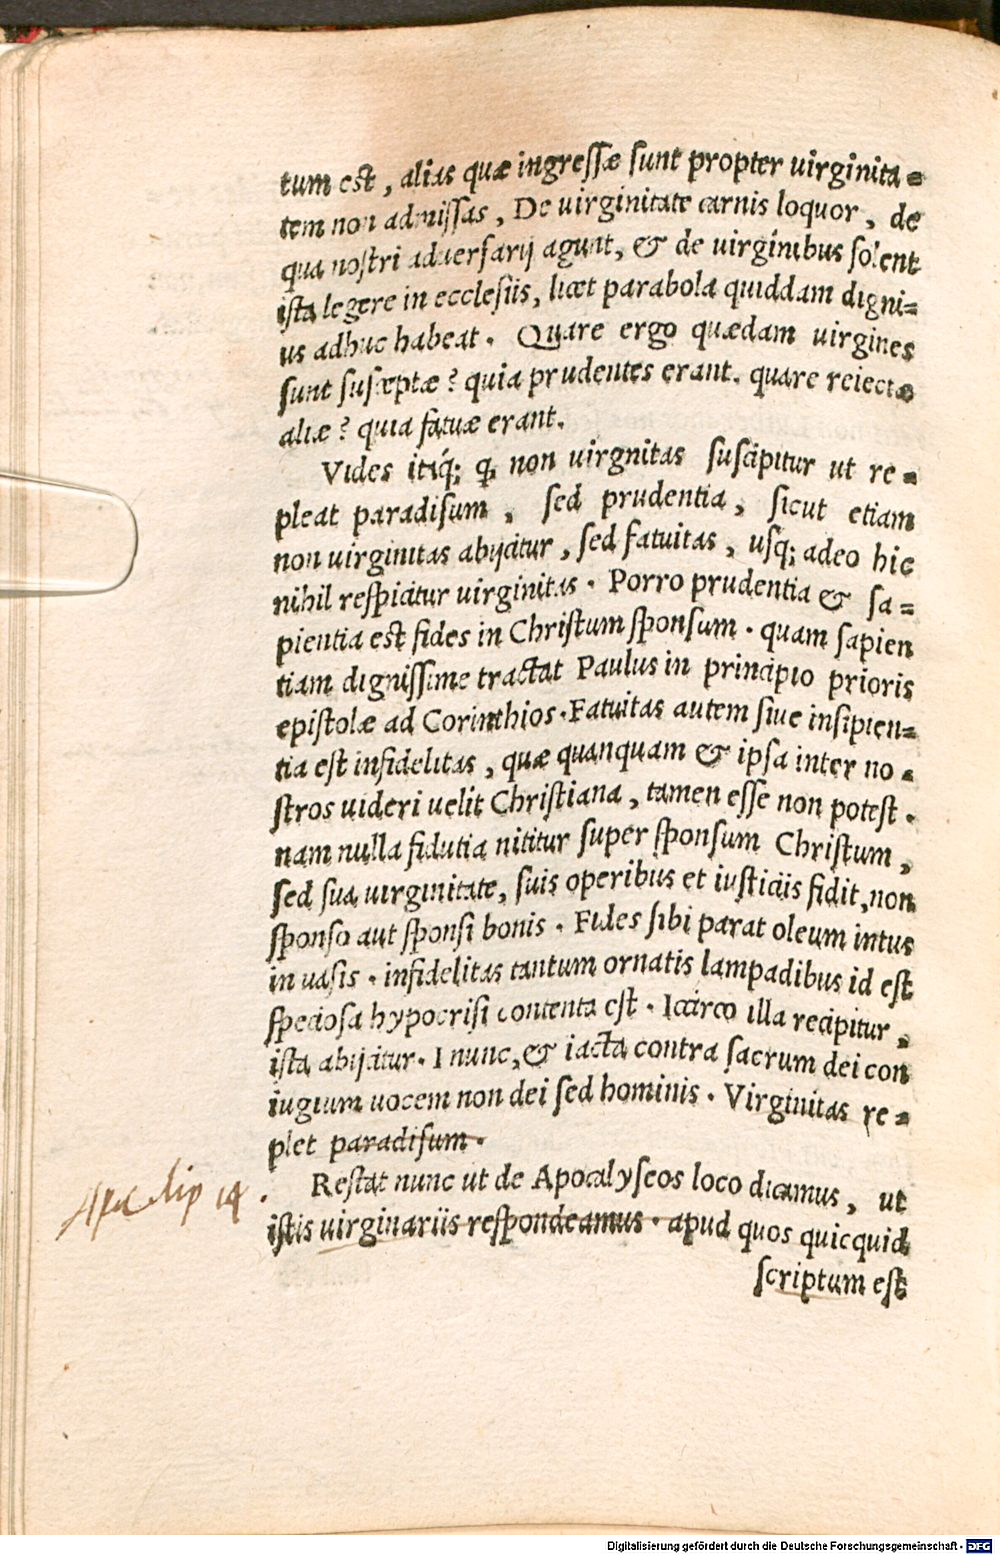 tum est, alias quæ ingressæ sunt propter virginita=
tem non admissas, De virginitate carnis loquor, de
qua nostri aduersarij agunt, & de uirginibus solent
ista legere in ecclesiis, licet parabola quiddam digni=
us adhuc habeat. Quare ergo quædam uirgines
sunt susceptæ? quia prudentes erant. quare reiectæ
aliæ? quia fatuæ erant.
Vides itaq́; ꝙ non uirgnitas suscipitur ut re=
pleat paradisum, sed prudentia, sicut etiam
non uirginitas abijcitur, sed fatuitas, usq; adeo hic
nihil respicitur uirginitas. Porro prudentia & sa=
pientia est fides in Christum sponsum. quam sapien
tiam dignissime tractat Paulus in principio prioris
epistolæ ad Corinthios. Fatuitas autem siue insipien=
tia est infidelitas, quæ quanquam & ipsa inter no=
stros uideri uelit Christiana, tamen esse non potest.
nam nulla fidutia nititur super sponsum Christum,
sed sua uirginitate, suis operibus et iusticiis fidit, non
sponso aut sponsi bonis. Fides sibi parat oleum intus
in uasis. infidelitas tantum ornatis lampadibus id est
speciosa hypocrisi contenta est. Iccirco illa recipitur,
ista abijcitur. I nunc, & iacta contra sacrum dei con
iugium uocem non dei sed hominis. Virginitas re=
plet paradisum.
Apocalip 14.
Restat nunc ut de Apocalyseos loco dicamus, ut
istis uirginariis respondeamus. apud quos quicquid
scriptum est
Digitalisierung gefördert durch die Deutsche Forschungsgemeinschaft - DFG